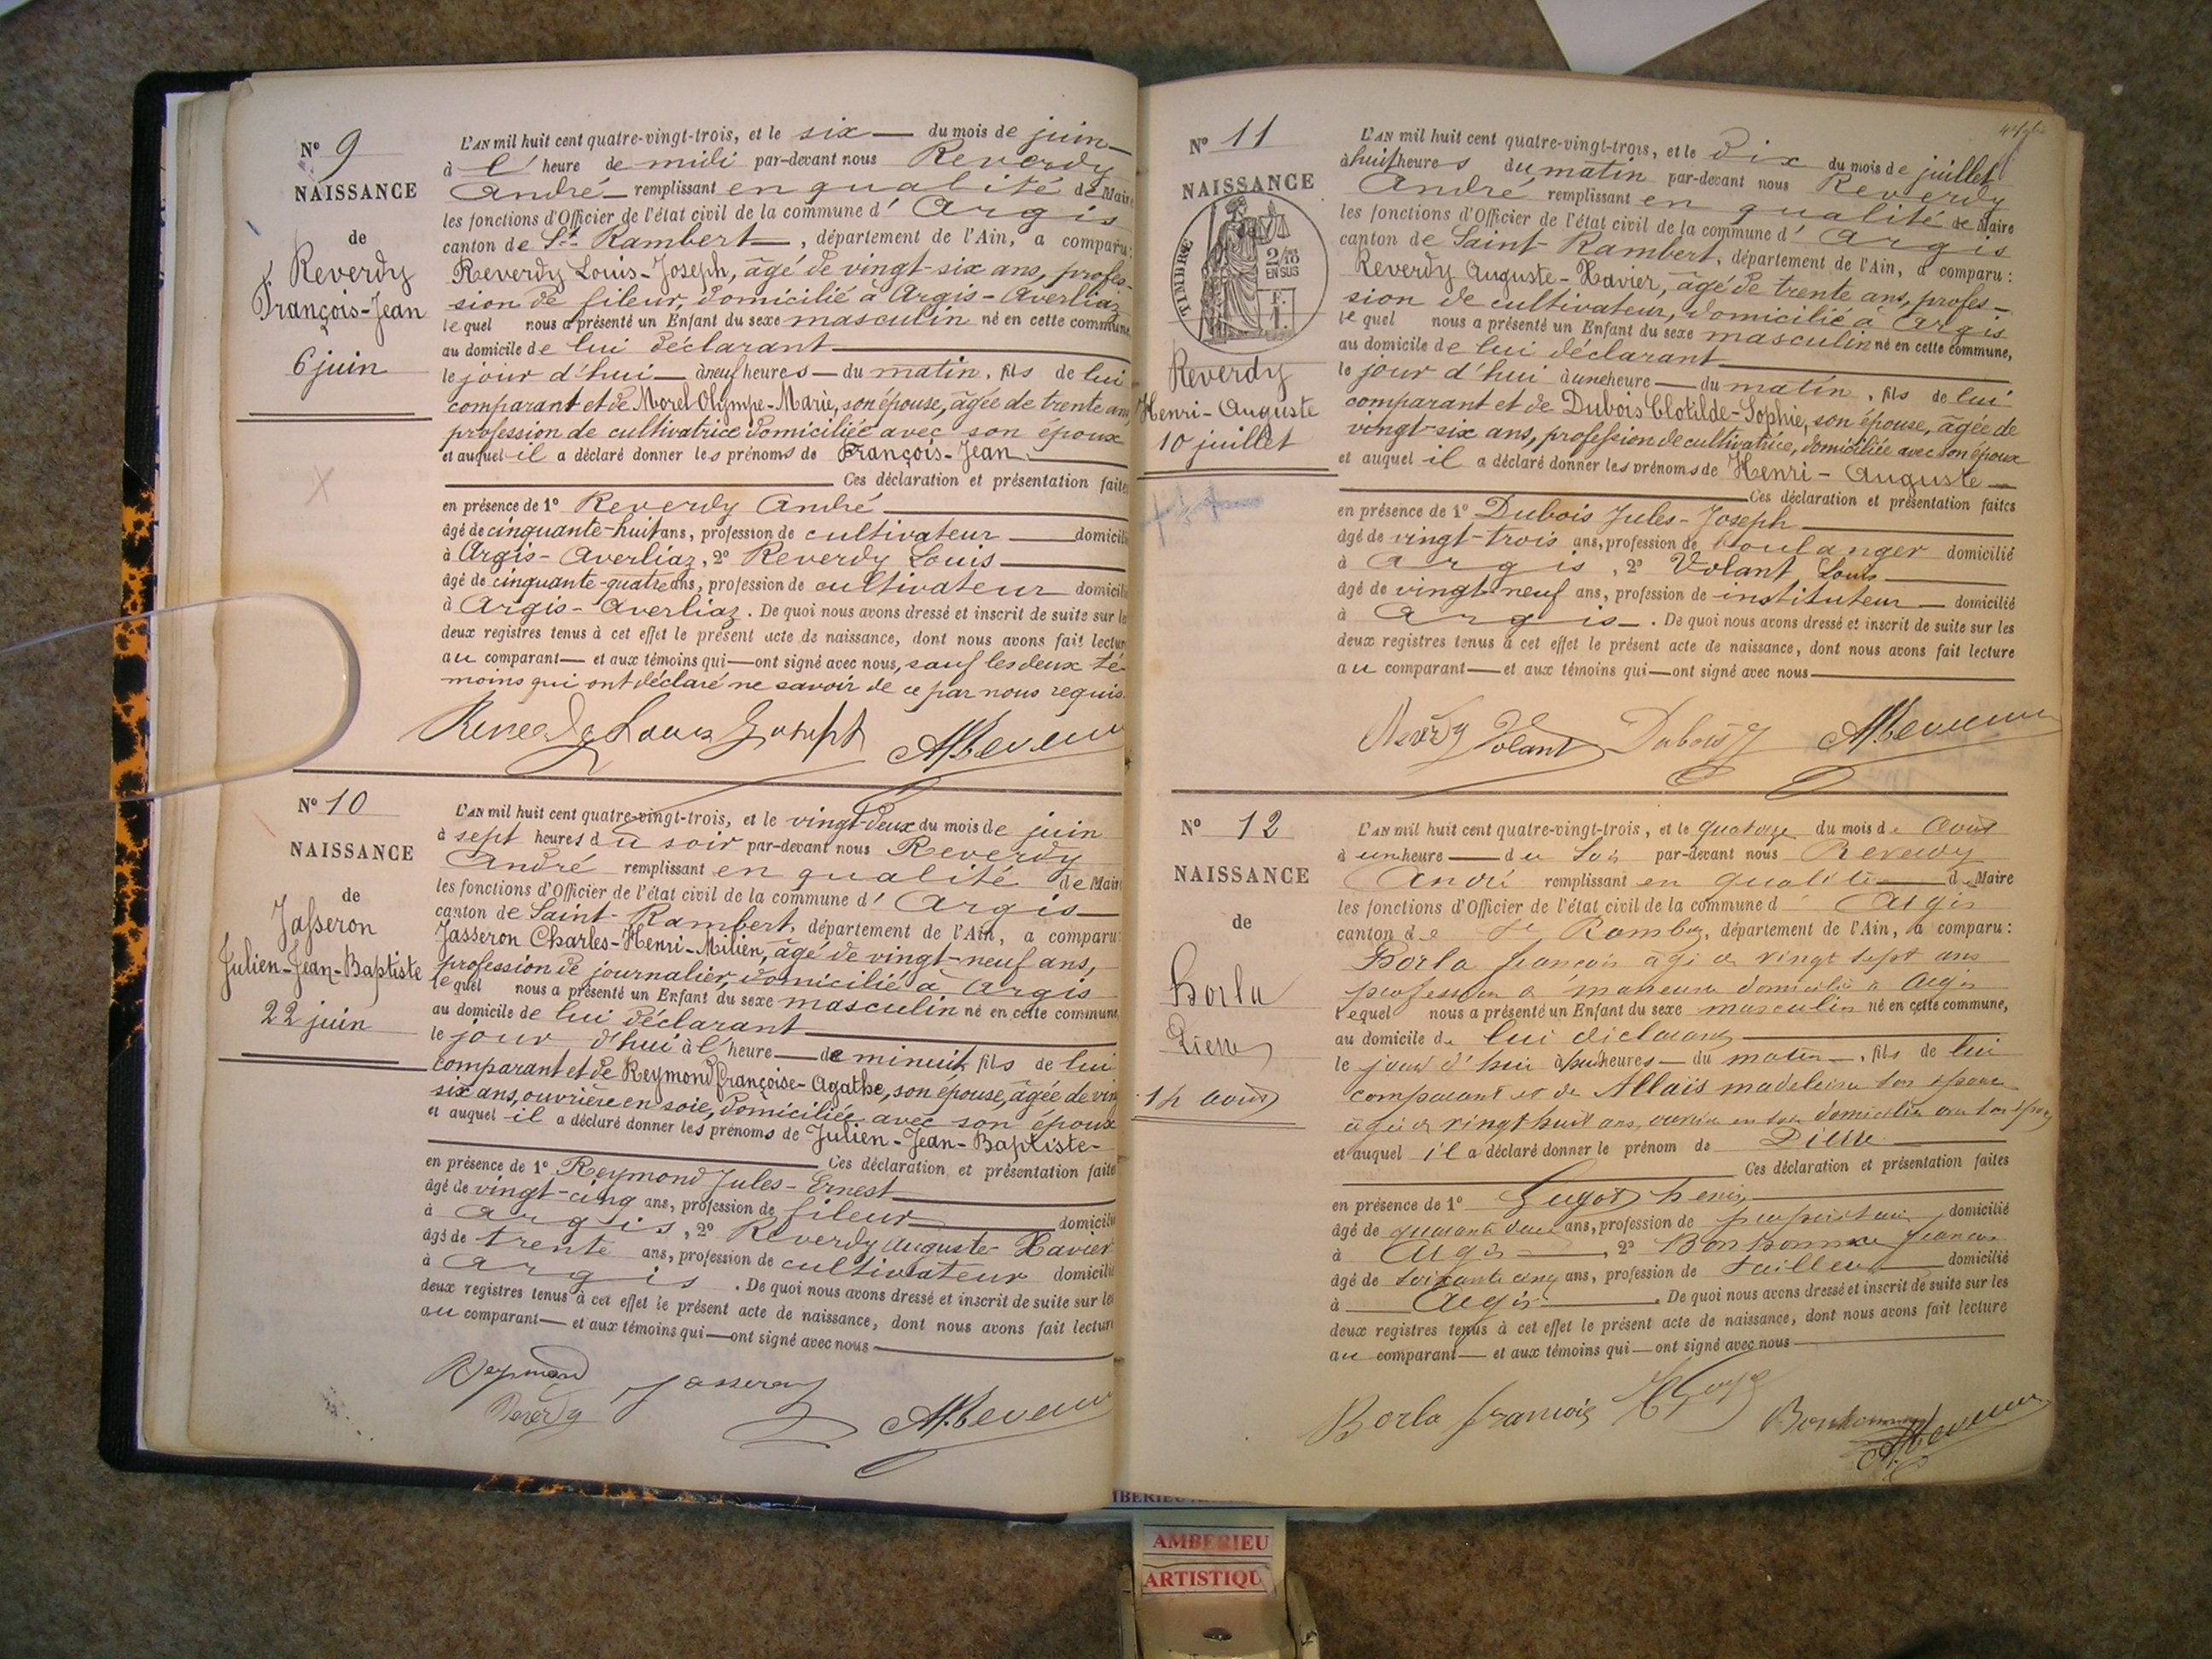 N° 9
NAISSANCE
de
Reverdy
François-Jean
6 juin
L'AN mil huit cent quatre-vingt-trois, et le six du mois de juin
à l'heure de midi par-devant nous Reverdy
André remplissant en qualité de Maire
les fonctions d'Officier de l'état civil de la commune d' Argis
canton de St Rambert, département de l'Ain, a comparu:
Reverdy Louis-Joseph, âgé de vingt-six ans, profes-
sion de fileur, domicilié à Argis-Averliaz
lequel nous a présenté un Enfant du sexe masculin né en cette commune,
au domicile de lui déclarant
le jour d'hui à neuf heures du matin, fils de lui
comparant et de Morel Olympe-Marie, son épouse, âgée de trente ans,
profession de cultivatrice domiciliée avec son époux
et auquel il a déclaré donner les prénoms de François-Jean.
Ces déclaration et présentation faites
en présence de 1° Reverdy André
âgé de cinquante-huit ans, profession de cultivateur domicilié
à Argis-Averliaz, 2° Reverdy Louis
âgé de cinquante-quatre ans, profession de cultivateur domicilié
à Argis-Averliaz. De quoi nous avons dressé et inscrit de suite sur les
deux registres tenus à cet effet le présent acte de naissance, dont nous avons fait lecture
au comparant et aux témoins qui ont signé avec nous, sauf les deux té-
moins qui ont déclaré ne savoir de ce par nous requis.
Reverdy Louis Joseph
N° 10
NAISSANCE
de
Jasseron
Julien-Jean-Baptiste
22 juin
L'AN mil huit cent quatre-vingt-trois, et le vingt-deux du mois de juin
à sept heures du soir par-devant nous Reverdy
André remplissant en qualité de Maire
les fonctions d'Officier de l'état civil de la commune d' Argis
canton de Saint-Rambert, département de l'Ain, a comparu:
Jasseron Charles-Henri-Milien, âgé de vingt-neuf ans,
profession de journalier, domicilié à Argis
lequel nous a présenté un Enfant du sexe masculin né en cette commune,
au domicile de lui déclarant
le jour d'hui à l'heure de minuit, fils de lui
comparant et de Reymond Françoise-Agathe, son épouse, âgée de vingt
six ans, ouvrière en soie, domiciliée avec son époux
et auquel il a déclaré donner les prénoms de Julien-Jean-Baptiste-
Ces déclaration et présentation faites
en présence de 1° Reymond Jules-Ernest
âgé de vingt-cinq ans, profession de fileur domicilié
à Argis, 2° Reverdy Auguste-Xavier
âgé de trente ans, profession de cultivateur domicilié
à Argis. De quoi nous avons dressé et inscrit de suite sur les
deux registres tenus à cet effet le présent acte de naissance, dont nous avons fait lecture
au comparant et aux témoins qui ont signé avec nous
Reymond
Jasseron
Reverdy
N° 11
NAISSANCE
TIMBRE
2/10
EN SUS
F.
1.
Reverdy
Henri-Auguste
10 juillet
L'AN mil huit cent quatre-vingt-trois, et le dix du mois de juillet
à huit heures du matin par-devant nous Reverdy
André remplissant en qualité de Maire
les fonctions d'Officier de l'état civil de la commune d' Argis
canton de Saint-Rambert, département de l'Ain, a comparu:
Reverdy Auguste-Xavier, âgé de trente ans, profes-
sion de cultivateur, domicilié à Argis
lequel nous a présenté un Enfant du sexe masculin né en cette commune,
au domicile de lui déclarant
le jour d'hui à une heure du matin, fils de lui
comparant et de Dubois Clotilde-Sophie, son épouse, âgée de
vingt-six ans, profession de cultivatrice, domiciliée avec son époux
et auquel il a déclaré donner les prénoms de Henri-Auguste
Ces déclaration et présentation faites
en présence de 1° Dubois Jules-Joseph
âgé de vingt-trois ans, profession de boulanger domicilié
à Argis, 2° Volant Louis
âgé de vingt-neuf ans, profession de instituteur domicilié
à Argis. De quoi nous avons dressé et inscrit de suite sur les
deux registres tenus à cet effet le présent acte de naissance, dont nous avons fait lecture
au comparant et aux témoins qui ont signé avec nous
Reverdy Volant Dubois J
N° 12
NAISSANCE
de
Borla
Pierre
14 août
L'AN mil huit cent quatre-vingt-trois, et le quatorze du mois de Août
à une heure du soir par-devant nous Reverdy
André remplissant en qualité de Maire
les fonctions d'Officier de l'état civil de la commune d' Argis
canton de St Rambert, département de l'Ain, a comparu:
Borla François âgé de vingt sept ans
profession de manœuvre domicilié à Argis
lequel nous a présenté un Enfant du sexe masculin né en cette commune,
au domicile de lui déclarant
le jour d'hui à heures du matin, fils de lui
comparant et de Allais madeleine son épouse
âgée de vingt huit ans, ouvrière en soie domiciliée avec son époux
et auquel il a déclaré donner le prénom de Pierre
Ces déclaration et présentation faites
en présence de 1° henri
âgé de quarante deux ans, profession de propriétaire domicilié
à Argis, 2° Bonhomme François
âgé de soixante cinq ans, profession de tailleur domicilié
à Argis. De quoi nous avons dressé et inscrit de suite sur les
deux registres tenus à cet effet le présent acte de naissance, dont nous avons fait lecture
au comparant et aux témoins qui ont signé avec nous
Borla françois
Bonhomme
AMBERIEU
ARTISTIQU